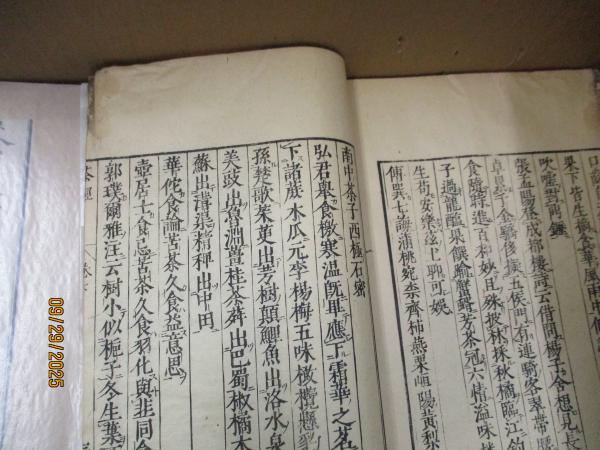 吹噓對鼎
張孟陽登成都樓詩云借問楊子舍想見長
卓累千金驕後擬五侯門有連騎客翠帶腰
食隨時進百和妙且殊披林採秋橘臨江釣
子過龍醢果饌踰蟹蝑芳茶冠六情溢味播
生苟安樂茲土聊可娛
傅巽七誨蒲桃宛柰齊柿燕栗峘陽黃梨
南中茶子西極石蜜
弘君舉食檄寒溫既畢應下霜華之茗
下諸蔗木瓜元李楊梅五味橄欖懸豹
孫楚歌茱萸出芳樹顛鯉魚出洛水泉
美豉出魯淵薑桂茶荈出巴蜀椒橘木
蘇出溝渠精稗出中田
華佗食論苦茶久食益意思
壺居士食忌苦茶久食羽化與韭同食
郭璞爾雅注云樹小似梔子冬生葉
茶經
09/29/2025